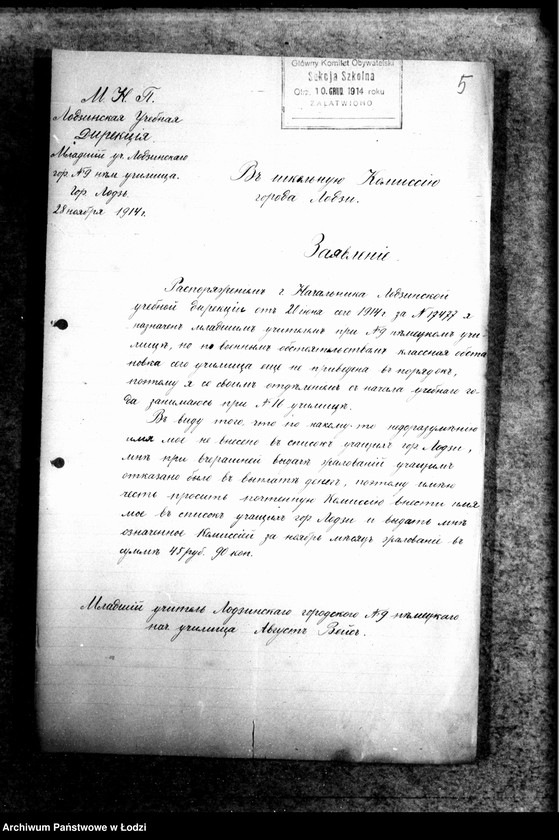 Główny Komitet Obywatelski
Sekcja Szkolna
Otrz. 10. GRUD 1914 roku
ZAŁATWIONO
5
М. Н. П.
Лодзинская Учебная
Дирекція.
Младшій уч. Лодзинскаго
гор. №9 нѣм. училища.
Гор. Лодзь.
28 ноября 1914 г.
Въ школьную Комиссію
города Лодзи.
Заявленіе.
Распоряженіемъ г. Начальника Лодзинской
учебной Дирекціи отъ 21 іюня сего 1914 г. за № 17477 я
назначенъ младшимъ учителемъ при №9 нѣмецкомъ учи-
лищѣ, но по военнымъ обстоятельствамъ классная обста-
новка сего училища еще не приведена въ порядокъ,
поэтому я со своимъ отдѣленіемъ съ начала учебнаго го-
да занимаюсь при № 11 училищѣ.
Въ виду того, что по какому-то недоразумѣнію
имя мое не внесено въ списокъ учащихъ гор. Лодзи,
мнѣ при вчерашней выдачѣ жалованій учащимъ
отказано было въ выплатѣ денегъ, поэтому имѣю
честь просить почтенную Комиссію внести имя
мое въ списокъ учащихъ гор. Лодзи и выдать мнѣ
означенное Комиссіей за ноябрь мѣсяцъ жалованіе въ
суммѣ 45 руб. 90 коп.
Младшій учитель Лодзинскаго городского №9 нѣмецкаго
нач. училища Августъ Вейсъ.
Archiwum Państwowe w Łodzi